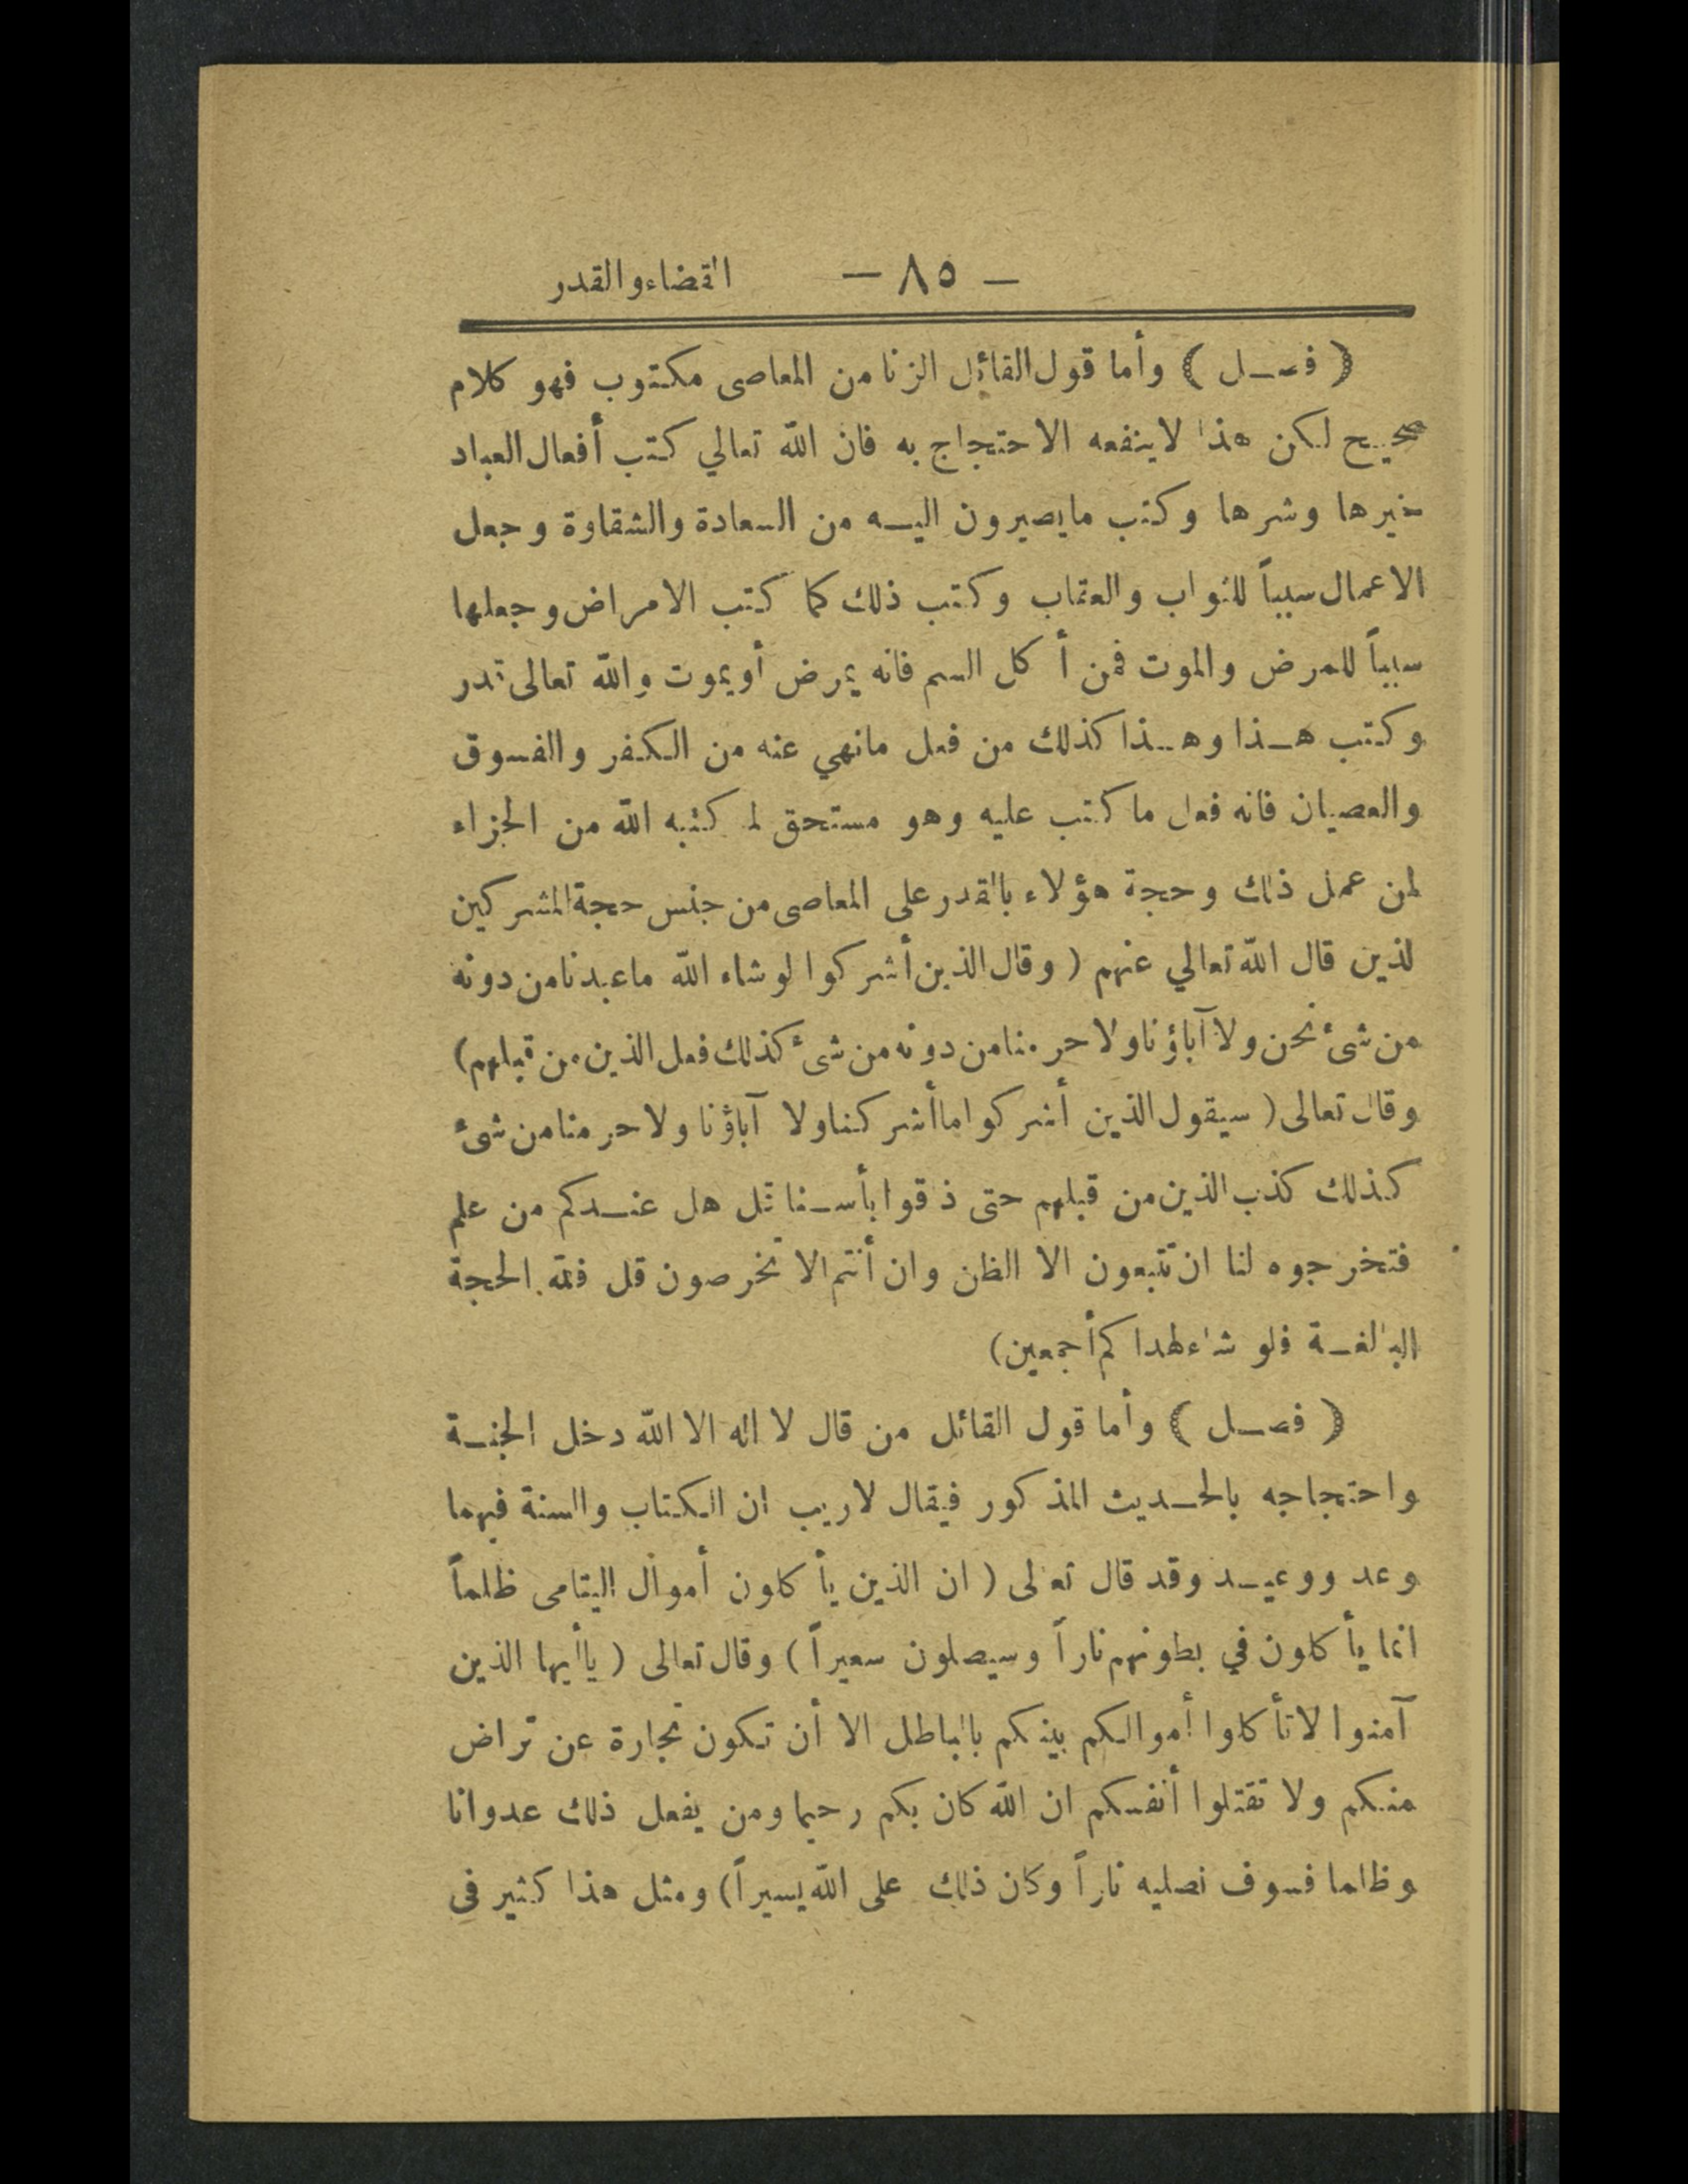 — ٨٥ — القضاء والقدر
( فصـل ) وأما قول القائل الزنا من المعاصى مكتوب فهو كلام
صحيح لكن هذا لاينفعه الاحتجاج به فان الله تعالي كتب أفعال العباد
خيرها وشرها وكتب مايصيرون اليه من السعادة والشقاوة وجعل
الاعمال سبباً للثواب والعقاب وكتب ذلك كما كتب الامراض وجعلها
سبباً للمرض والموت فمن أكل السم فانه يمرض أو يموت والله تعالى قدر
وكتب هذا وهذا كذلك من فعل مانهي عنه من الكفر والفسوق
والعصيان فانه فعل ما كتب عليه وهو مستحق لما كتبه الله من الجزاء
لمن عمل ذلك وحجة هؤلاء بالقدر على المعاصى من جنس حجة المشركين
لذين قال الله تعالي عنهم ( وقال الذين أشركوا لو شاء الله ماعبدنا من دونه
من شئ نحن ولا آباؤنا ولا حرمنا من دونه من شئ كذلك فعل الذين من قبلهم)
وقال تعالى ( سيقول الذين أشركوا ماأشركنا ولا آباؤنا ولا حرمنا من شئ
كذلك كذب الذين من قبلهم حتى ذقوا بأسنا قل هل عندكم من علم
فتخرجوه لنا ان تتبعون الا الظن وان أنتم الا تخرصون قل فلله الحجة
البالغة فلو شاء لهداكم أجمعين)
( فصـل ) وأما قول القائل من قال لا اله الا الله دخل الجنة
واحتجاجه بالحديث المذكور فيقال لاريب ان الكتاب والسنة فيهما
وعد ووعيد وقد قال تعالى ( ان الذين يأكلون أموال اليتامى ظلماً
انما يأكلون في بطونهم ناراً وسيصلون سعيراً ) وقال تعالى ( ياأيها الذين
آمنوا لاتأكلوا أموالكم بينكم بالباطل الا أن تكون تجارة عن تراض
منكم ولا تقتلوا أنفسكم ان الله كان بكم رحيما ومن يفعل ذلك عدوانا
وظلما فسوف نصليه ناراً وكان ذلك على الله يسيراً) ومثل هذا كثير في